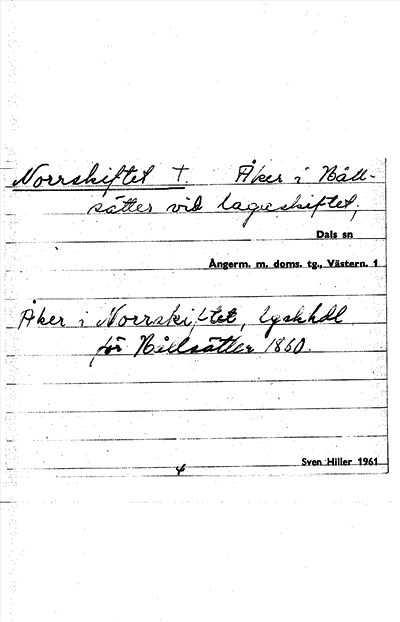 Norrskiftet †. Åker i Nåll-
sätter vid lagaskiftet,
Dals sn
Ångerm. m. doms. tg., Västern. 1
Åker i Norrskiftet, lgskhdl
för Nållsätter 1860.
Sven Hiller 1961